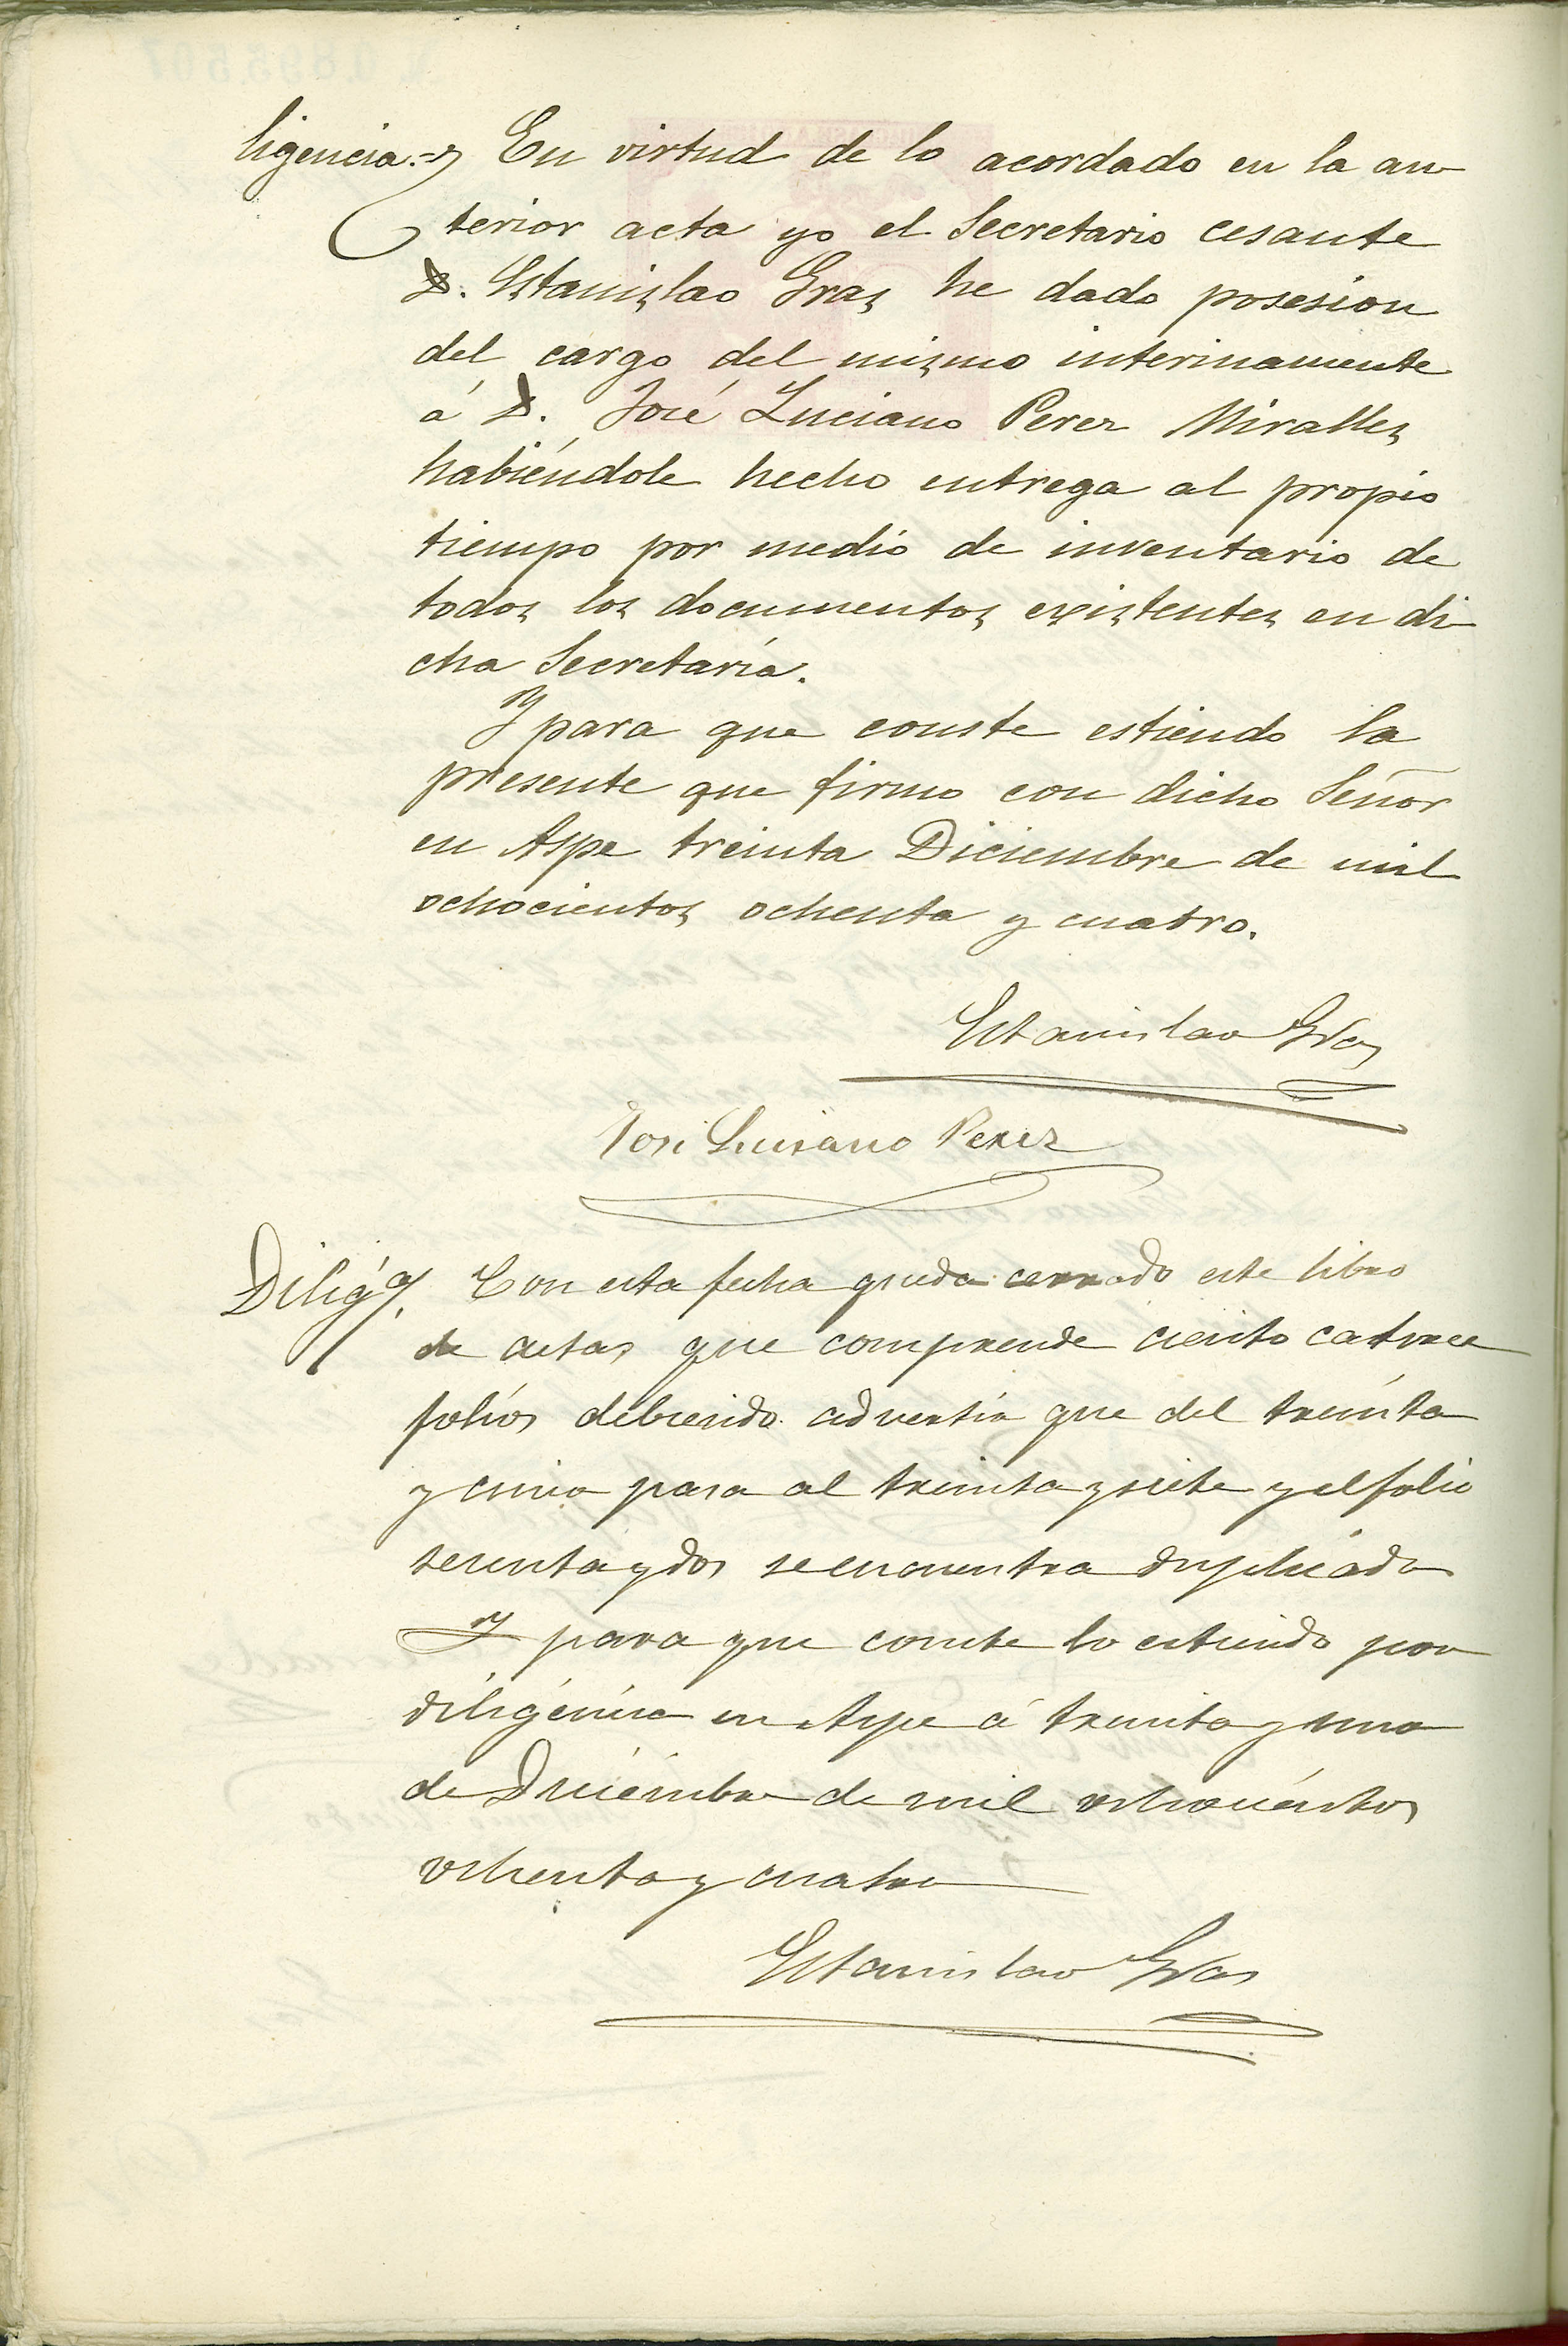 ligencia.= En virtud de lo acordado en la an-
terior acta yo el Secretario cesante
D. Estanislao Gras he dado posesion
del cargo del mismo interinamente
á D. José Luciano Perez Miralles
habiéndole hecho entrega al propio
tiempo por medio de inventario de
todos los documentos existentes en di-
cha Secretaría.
Y para que conste estiendo la
presente que firmo con dicho Señor
en Aspe treinta Diciembre de mil
ochocientos ochenta y cuatro.
Estanislao Gras
José Luciano Perez
Diligª. Con esta fecha queda cerrado este libro
de actas que comprende ciento catorce
folios debiendo advertir que del treinta
y cinco pasa al treinta y siete y el folio
sesenta y dos se encuentra duplicado
Y para que conste lo estiendo por
diligencia en Aspe á treinta y uno
de Diciembre de mil ochocientos
ochenta y cuatro
Estanislao Gras